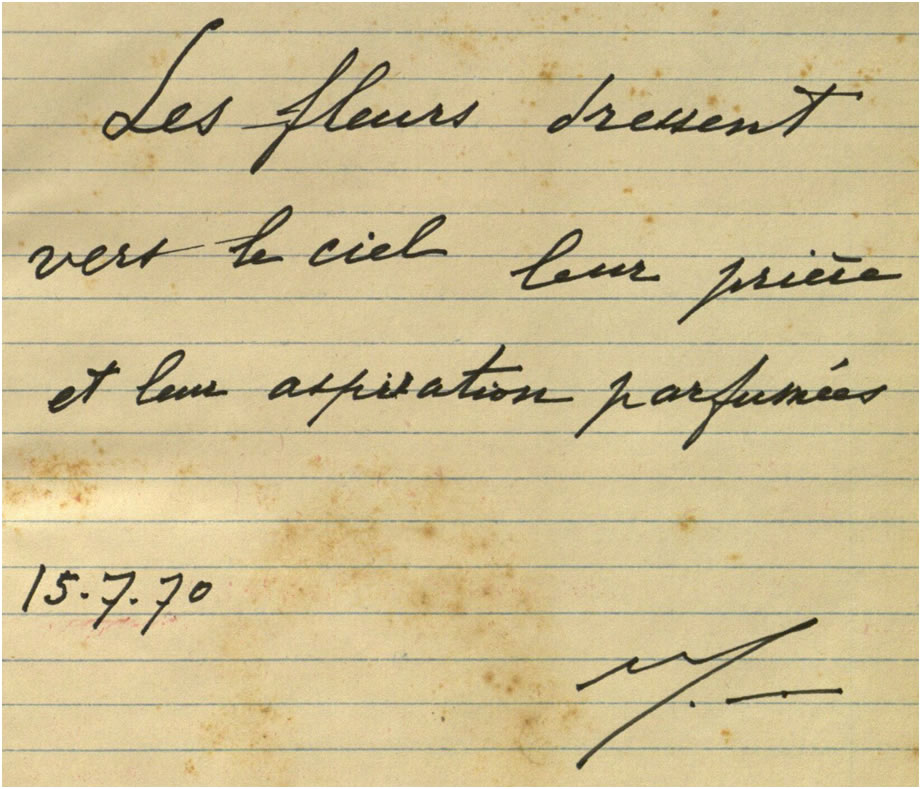 Les fleurs dressent
vers le ciel leur prière
et leur aspiration parfumées
15.7.70